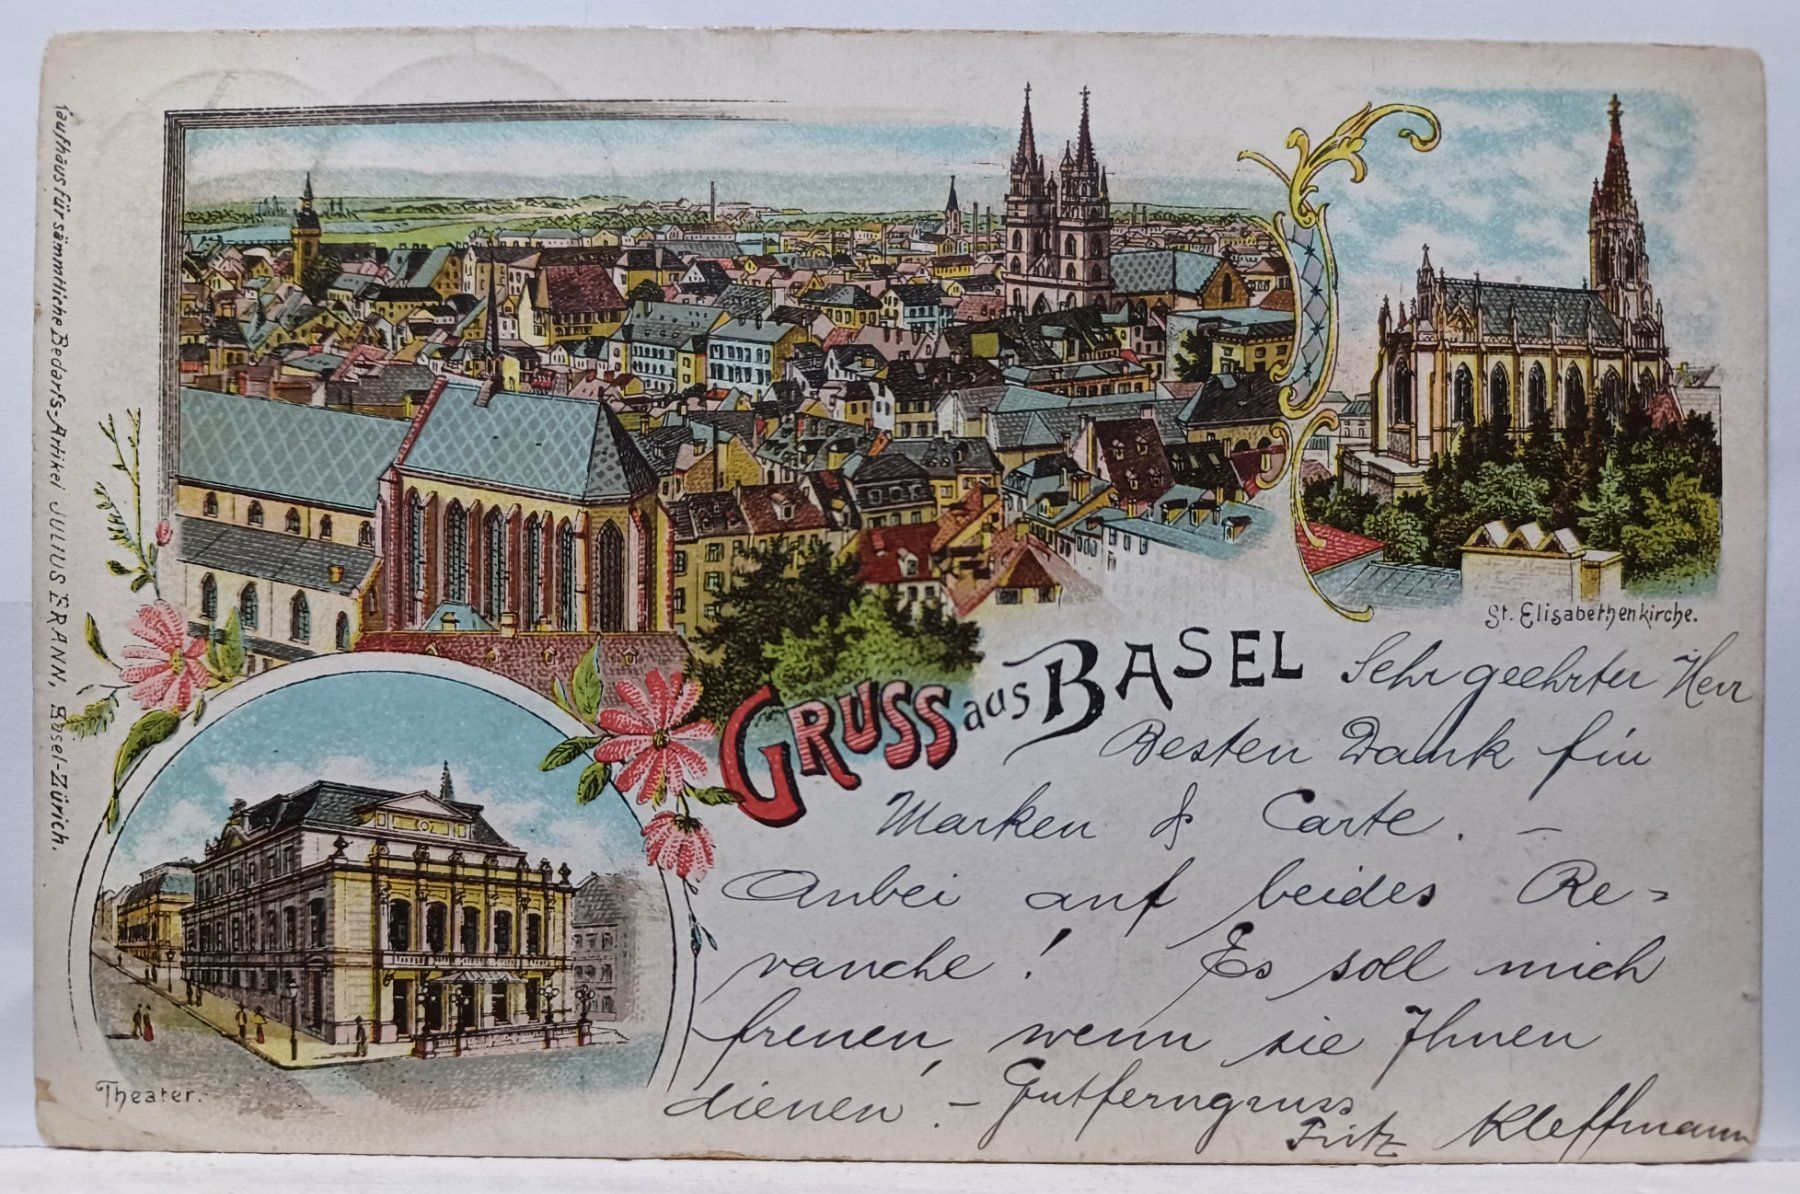 Kaufhaus für sämmtliche Bedarfs-Artikel JULIUS ERANN, Basel-Zürich.
St. Elisabethenkirche.
GRUSS aus BASEL
Sehr geehrter Herr
Besten Dank für
Marken & Carte. —
Anbei auf beides Re-
vanche! Es soll mich
freuen, wenn sie Ihnen
dienen. – Gutferngruss
Fritz Kleffmann
Theater.